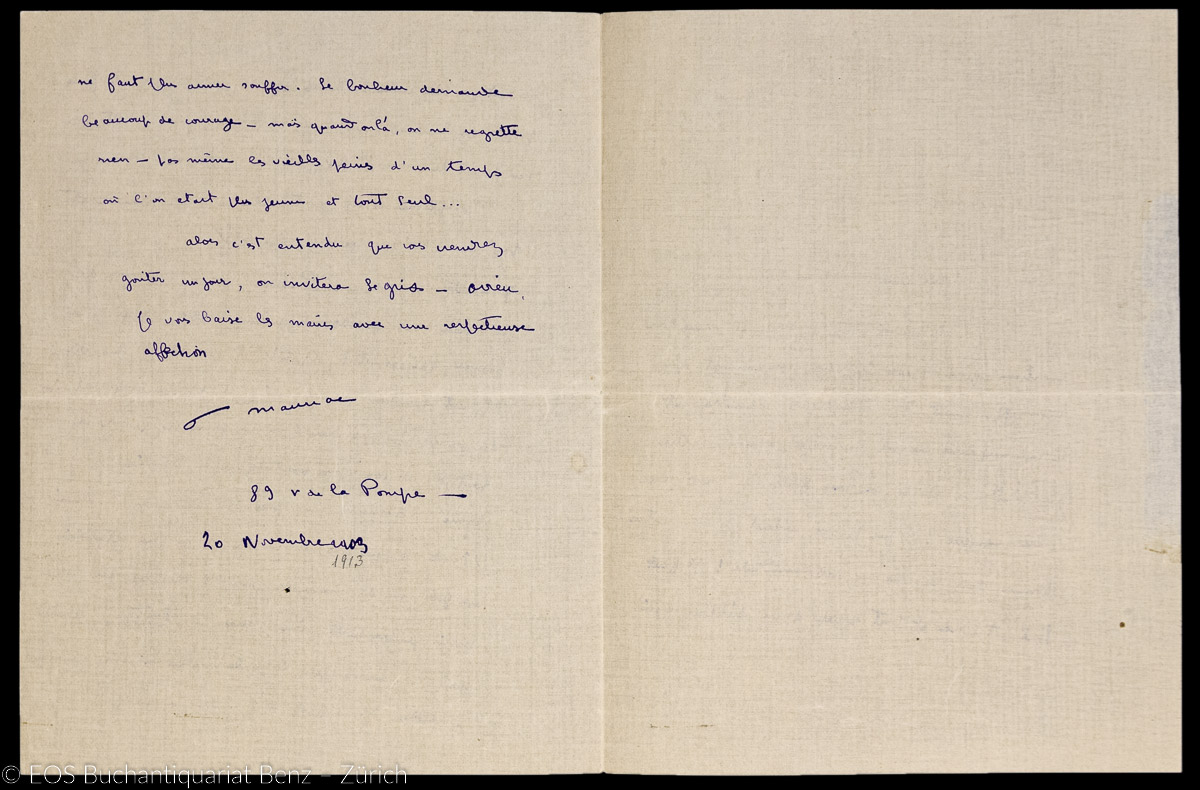 ne faut plus aimer souffrir. Le bonheur demande
beaucoup de courage – mais quand on l'a, on ne regrette
rien – pas même les vieilles peines d'un temps
où l'on etait plus jeune et tout seul...
alors c'est entendu que vous viendrez
goûter un jour, on invitera Le
Je vous baise les mains avec une respectueuse
affection
Mauriac
89 r de la Pompe —
20 Novembre
1913
© EOS Buchantiquariat Benz – Zürich